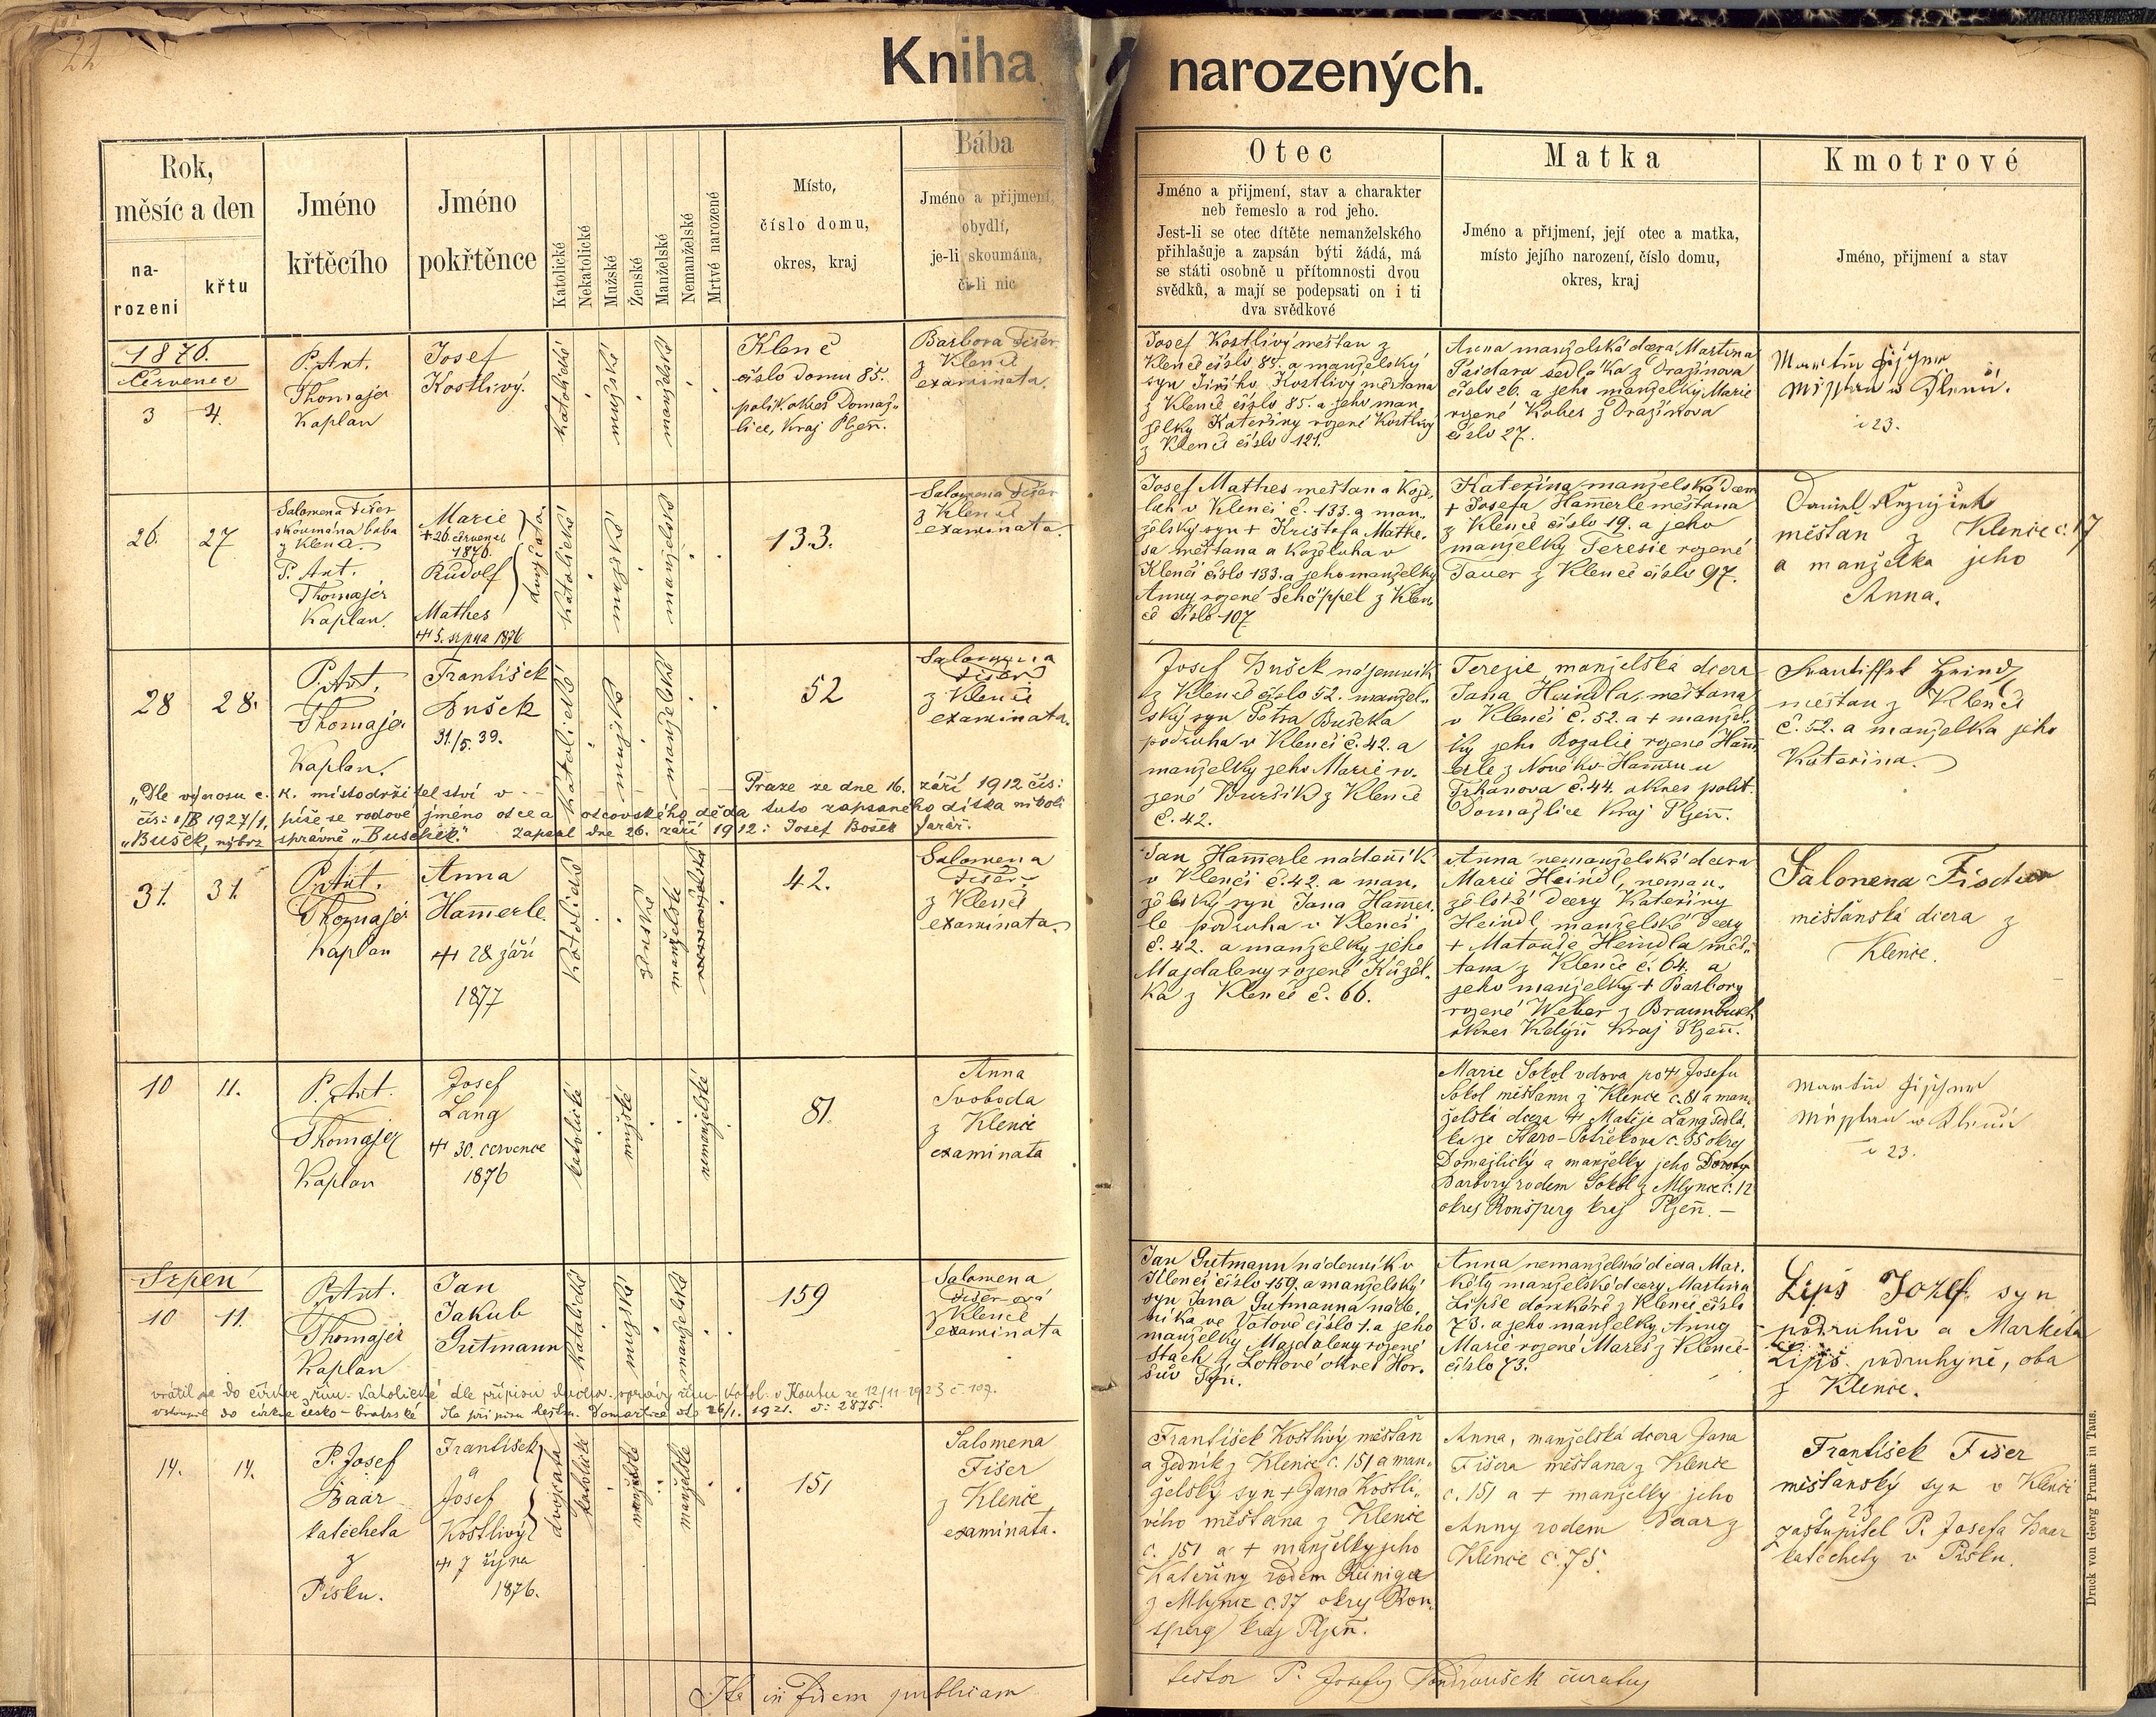 22
Kniha narozených.
Rok,
měsíc a den
na-
rozeni
křtu
Jméno
křtěcího
Jméno
pokřtěnce
Katolické
Nekatolické
Mužské
Ženské
Manželské
Nemanželské
Mrtvé narozené
Místo,
číslo domu,
okres, kraj
Bába
Jméno a přijmení,
obydlí,
je-li skoumána,
či-li nic
Otec
Jméno a přijmení, stav a charakter
neb řemeslo a rod jeho.
Jest-li se otec dítěte nemanželského
přihlašuje a zapsán býti žádá, má
se státi osobně u přítomnosti dvou
svědků, a mají se podepsati on i ti
dva svědkové
Matka
Jméno a přijmení, její otec a matka,
místo jejího narození, číslo domu,
okres, kraj
Kmotrové
Jméno, přijmení a stav
1876.
Červenec
3 4.
P. Ant.
Thomajer
Kaplan
Josef
Kostlivý.
katolické
mužské
manželské
Klenč
číslo domu 85.
polit. okres Domaž-
lice, Kraj Plzeň.
Barbora Fišer
z Klenče
examinata.
Josef Kostlivý měšťan z
Klenče číslo 85. a manželský
syn Jiřího Kostlivý měšťana
z Klenče číslo 85. a jeho man
želky Kateřiny rozené Kostlivý
z Klenče číslo 121.
Anna manželská dcera Martina
Paidara sedláka z Dražinova
číslo 26. a jeho manželky Marie
rozené Kobes z Dražinova
číslo 27.
Martin
č 23.
26. 27
Salomena Fišer
skoumána bába
z Klenče.
P. Ant.
Thomajer
Kaplan.
Marie
+ 26. července
1876.
Rudolf
Mathes
+ 5. srpna 1876
dvojčata
katolické
mužské
manželské
133.
Salomena Fišer
z Klenče
examinata.
Josef Mathes měšťan a Kože-
luh v Klenči č. 133. a man-
želský syn + Krištofa Mathe-
sa měšťana a Koželuha v
Klenči číslo 133. a jeho manželky
Anny rozené Schöppel z Klen-
če číslo 107
Kateřina manželská dcera
+ Josefa Hammerle měšťana
z Klenče číslo 19. a jeho
manželky Teresie rozené
Tauer z Klenče číslo 97.
Daniel
měšťan z Klenče č. 17
a manželka jeho
Anna.
28 28.
P. Ant.
Thomajer
Kaplan.
František
Bušek
31./5. 39.
katolické
mužské
manželské
52
Salomena
Fišer
z Klenče
examinata.
Josef Bušek nájemník
z Klenče číslo 52. manžel-
ský syn Petra Bušeka
podruha v Klenči č. 42. a
manželky jeho Marie ro-
zené Buršík z Klenče
č. 42.
Terezie manželská dcera
Jana Heindla, měšťana
v Klenči č. 52. a + manžel-
ky jeho Rozalie rozené Hamm
erle z Nového Hamru u
Trhanova č. 44. okres polit.
Domažlice Kraj Plzeň.
Frantisek Heindl
měšťan z Klenče
č. 52. a manželka jeho
Kateřina.
„Dle výnosu c. k. místodržitelství v Praze ze dne 16. září 1912 čís:
čís: 1/B 1927/1, píše se rodové jméno otce a otcovského děda tuto zapsaného dítka nikoli
„Bušek, nýbrž správně „Buschek.“ Zapsal dne 26. září 1912: Josef Bošek farář.
31. 31.
P. Ant.
Thomajer
Kaplan
Anna
Hammerle
+ 28 září
1877
katolické
ženské
manželské
nemanželské
42.
Salomena
Fišer
z Klenče
examinata.
Jan Hammerle nádenník
v Klenči č. 42. a man-
želský syn Jana Hammer
le podruha v Klenči
č. 42. a manželky jeho
Majdaleny rozené Kužel-
ka z Klenče č. 66.
Anna nemanželská dcera
Marie Heindl, neman-
želské dcery Kateřiny
Heindl manželské dcery
+ Matouše Heindla měš-
ťana z Klenče č. 64. a
jeho manželky + Barbory
rozené Weber z Braunbusch
okres Kdýň Kraj Plzeň.
Salonena Fischer
měšťanská dcera z
Klenče.
10 11.
P. Ant.
Thomajer
Kaplan
Josef
Lang
+ 30. července
1876
katolické
mužské
nemanželské
81.
Anna
Svoboda
z Klenče
examinata
Marie Sokol vdova po + Josefu
Sokol měšťanu z Klenče č. 81 a man-
želská dcera + Matěje Lang sedlá-
ka ze Staro-Postřekova č. 35 okres
Domažlický a manželky jeho
Barbory rodem Sokol z Mlýnce č. 12
okres Ronsperg kraj Plzeň. —
Martin
č 23.
Srpen
10 11.
P. Ant.
Thomajer
Kaplan
Jan
Jakub
Gutmann
katolické
mužské
manželské
159
Salomena
Fišer-ová
z Klenče
examinata
Jan Gutmann nádenník v
Klenči číslo 159. a manželský
syn Jana Gutmanna náde-
níka ve Votově číslo 1. a jeho
manželky Majdaleny rozené
Stach z Lottové okres Hor-
šův Týn.
Anna nemanželská dcera Mar-
kéty manželské dcery Martina
Lipše domkáře z Klenče číslo
73. a jeho manželky Anny
Marie rozené Mareš z Klenče
číslo 73.
Lipš Jozef syn
podruhův a Markéta
Lipš podruhyně, oba
z Klenče.
vrátil se do církve řím.-katolické dle přípisu duchov. správy řím. katol. v Koutu ze 12/11 1923 č. 109.
vstoupil do církve česko-bratrské dle přípisu hejtm. Domažlice dto 26/1. 1921. č: 2875.
14. 14.
P. Josef
Baar
katecheta
z
Písku.
František
a
Josef
Kostlivý
+ 7 října
1876.
dvojčata
katolické
mužské
manželské
151
Salomena
Fišer
z Klenče
examinata.
František Kostlivý měšťan
a zedník z Klenče č. 151 a man-
želský syn + Jana Kostli-
vého měšťana z Klenče
č. 151 a + manželky jeho
Kateřiny rodem Reiniger
z Mlýnce č. 37 okres Ron-
sperg kraj Plzeň.
Anna, manželská dcera Jana
Fišera měšťana z Klenče
č. 151 a + manželky jeho
Anny rodem Baar z
Klenče č. 75.
František Fišer
měšťanský syn v Klenči
č. 23
zastupitel P. Josefa Baar
katechety v Písku.
Ita in fidem publicam
testor P. Josefus Vondroušek curatus
Druck von Georg Prunar in Taus.